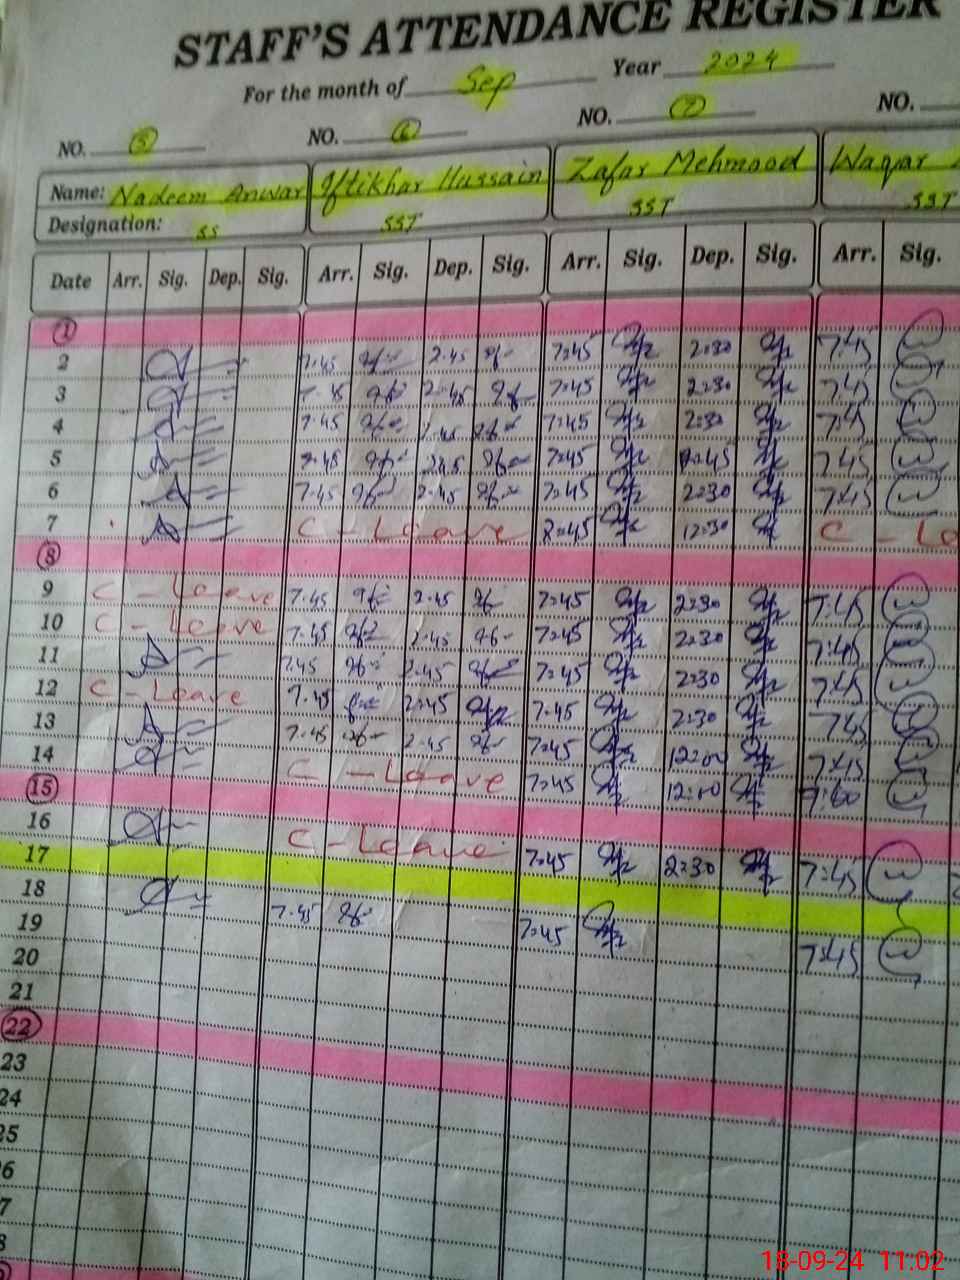 STAFF'S ATTENDANCE REGISTER
For the month of Sep Year 2024
NO. 5 NO. 6 NO. 7 NO.
Name: Nadeem Anwar Iftikhar Hussain Zafar Mehmood Waqar
Designation: SS SST SST SST
Date Arr. Sig. Dep. Sig. Arr. Sig. Dep. Sig. Arr. Sig. Dep. Sig. Arr. Sig.
1
2 7:45 2:45 7:45 2:30 7:45
3 7:45 2:45 7:45 2:30 7:45
4 7:45 2:45 7:45 2:30 7:45
5 7:45 2:45 7:45 2:45 7:45
6 7:45 2:45 7:45 2:30 7:45
7 C - Leave 8:45 12:30 C - Le
8
9 C - Leave 7:45 2:45 7:45 2:30 7:45
10 C - Leave 7:45 2:45 7:45 2:30 7:45
11 7:45 2:45 7:45 2:30 7:45
12 C - Leave 7:45 2:45 7:45 2:30 7:45
13 7:45 2:45 7:45 12:00 7:45
14 C - Leave 7:45 12:00
15
16 C - Leave 7:45 2:30 7:45
17
18 7:45 7:45 7:45
19
20
21
22
23
24
25
6
7
8
18-09-24 11:02